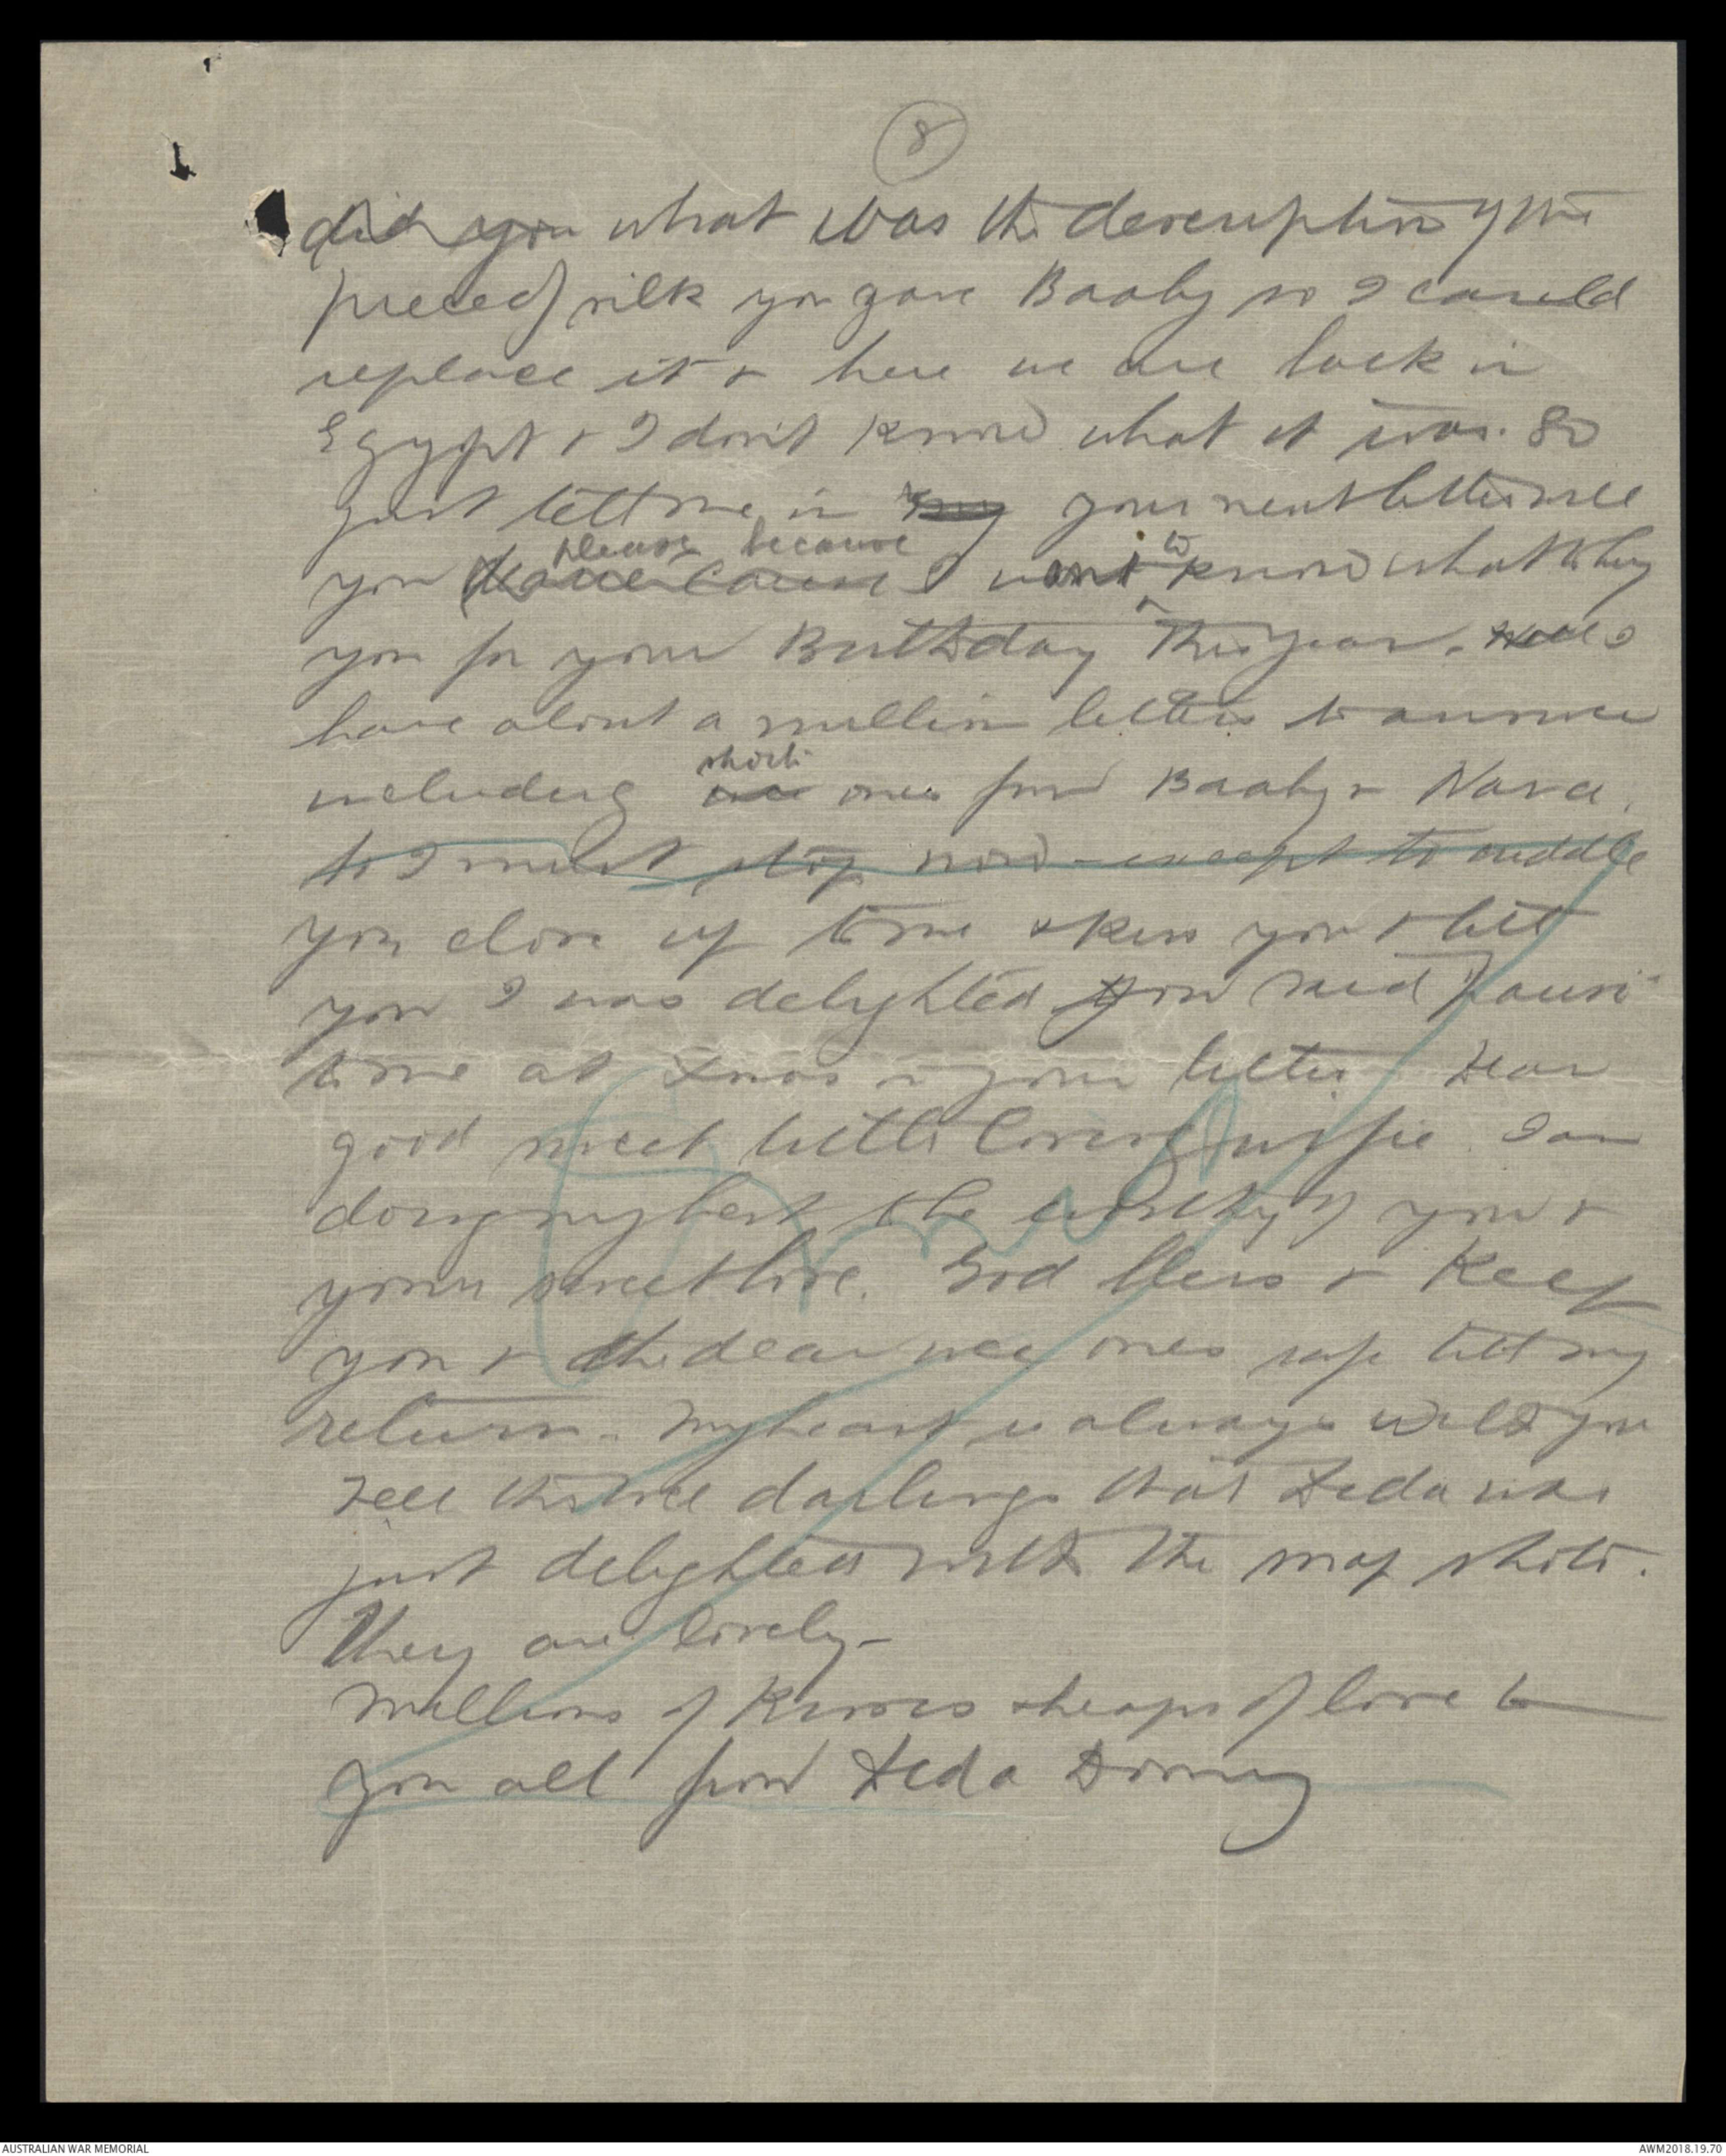 8
did you what was the description of the
piece of silk you gave Baaby so I could
replace it & here we are back in
Egypt & I don't know what it was. So
just tell me in my your next letter will
you please because I want to know what to buy
you for your Birthday This year. Well I
have about a million letters to answer
including short ones from Baaby &
so I must stop now - except to cuddle
you close up to me & kiss you & tell
you I was delighted you said
to me at Xmas in your letter. Dear
good sweet little loving wifie I am
doing my best to be worthy of you &
your sweet love. God bless & Keep
you & the dear wee ones safe till my
return. My heart is always with you
Tell the wee darlings that Deda was
just delighted with the snap shots.
They are lovely -
Millions of Kisses & heaps of love to
you all from Deda
AUSTRALIAN WAR MEMORIAL
AWM2018.19.70